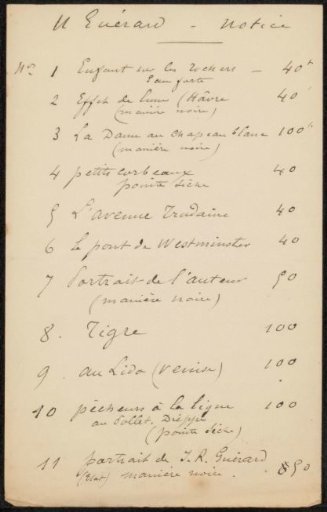 H Guérard - Notice
Nos 1 Enfant sur les rochers - 40f
Eau forte
2 Effet de lune (Hâvre 40
(manière noire)
3 La Dame au chapeau blanc 100f
(manière noire)
4 petits corbeaux 40
pointe sèche
5 L'avenue Trudaine 40
6 Le pont de Westminster 40
7 Portrait de l'auteur 50
(manière noire)
8. Tigre 100
9. au Lido (Venise) 100
10 pêcheurs à la ligne 100
au Pollet. Dieppe
(pointe sèche)
11 portrait de J. R. Guérard
(état) manière noire. 50